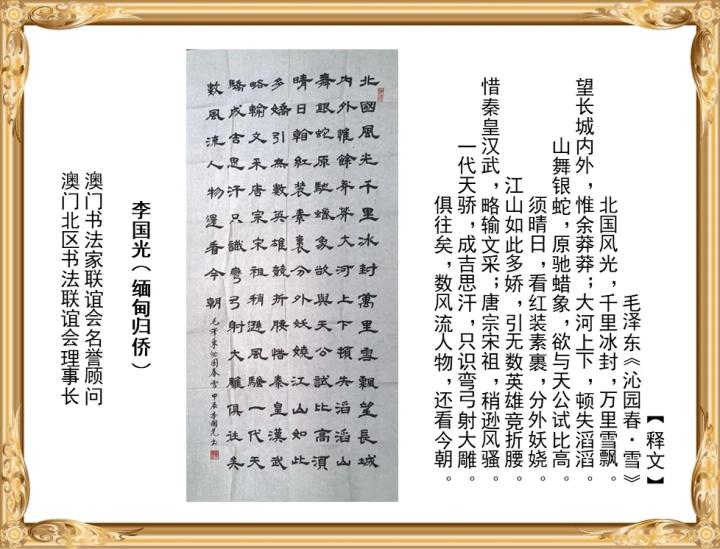 【释文】
毛泽东《沁园春·雪》
北国风光，千里冰封，万里雪飘。
望长城内外，惟余莽莽；大河上下，顿失滔滔。
山舞银蛇，原驰蜡象，欲与天公试比高。
须晴日，看红装素裹，分外妖娆。
江山如此多娇，引无数英雄竞折腰。
惜秦皇汉武，略输文采；唐宗宋祖，稍逊风骚。
一代天骄，成吉思汗，只识弯弓射大雕。
俱往矣，数风流人物，还看今朝。
北國風光千里冰封萬里雪飄望長城
內外惟餘莽莽大河上下頓失滔滔山
舞銀蛇原馳蠟象欲與天公試比高須
晴日看紅裝素裹分外妖嬈江山如此
多嬌引無數英雄競折腰惜秦皇漢武
略輸文采唐宗宋祖稍遜風騷一代天
驕成吉思汗只識彎弓射大雕俱往矣
數風流人物還看今朝 毛澤東沁園春雪 甲辰李國光書
李国光（缅甸归侨）
澳门书法家联谊会名誉顾问
澳门北区书法联谊会理事长